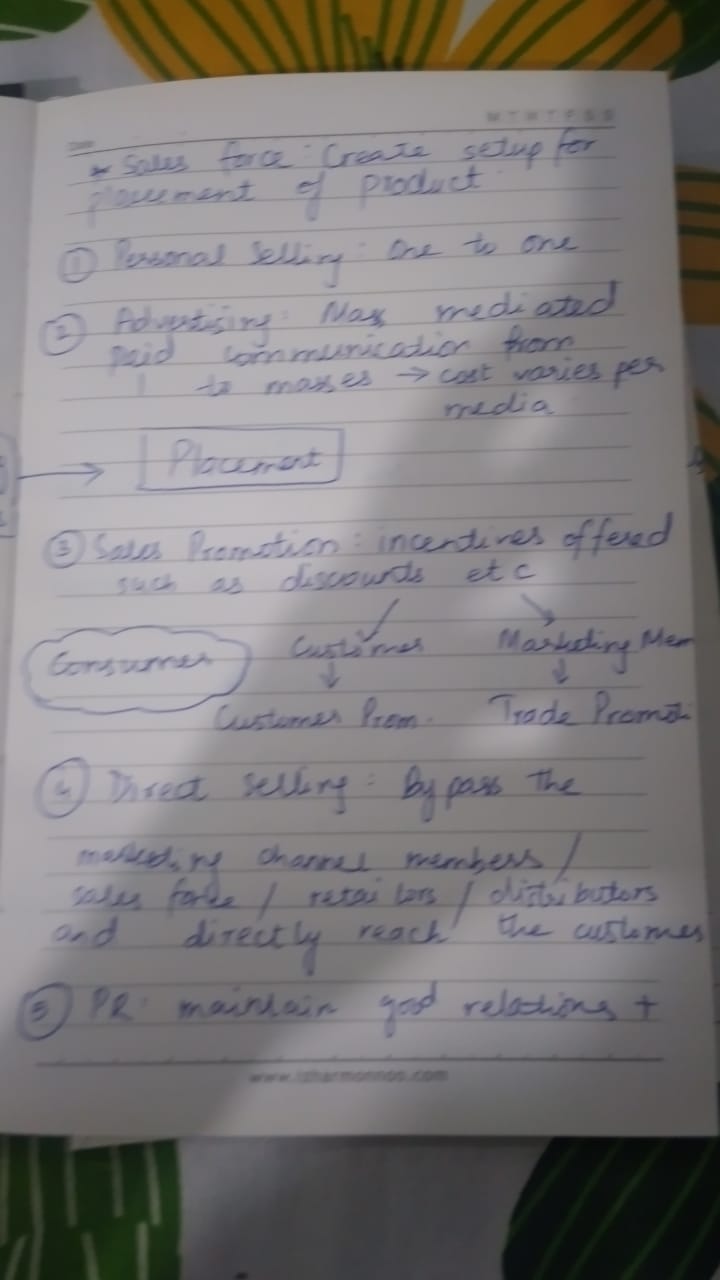 M T W T F S S
Date
* Sales force : Create setup for
placement of product
① Personal Selling : One to one
② Advertising : Mass mediated
paid communication from
1 to masses → cost varies per
media
→ Placement
③ Sales Promotion : incentives offered
such as discounts etc
Consumer Customer Marketing Mem
Customer Prom. Trade Promoti
④ Direct Selling : By pass the
marketing channel members /
sales force / retailers / distributors
and directly reach the customer
⑤ PR : maintain good relations +